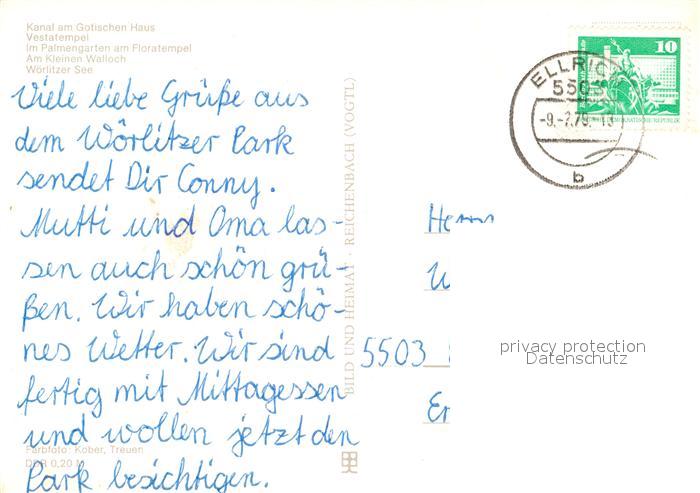 Kanal am Gotischen Haus
Vestatempel
Im Palmengarten am Floratempel
Am Kleinen Walloch
Wörlitzer See
Viele liebe Grüße aus
dem Wörlitzer Park
sendet Dir Conny.
Mutti und Oma las-
sen auch schön grü-
ßen. Wir haben schö-
nes Wetter. Wir sind
fertig mit Mittagessen
und wollen jetzt den
Park besichtigen.
Farbfoto: Kober, Treuen
DDR 0,20 M
BILD UND HEIMAT · REICHENBACH (VOGTL)
10
DEMOKRATISCHE REPUBLIK
5503
b
Herrn
5503
privacy protection
Datenschutz